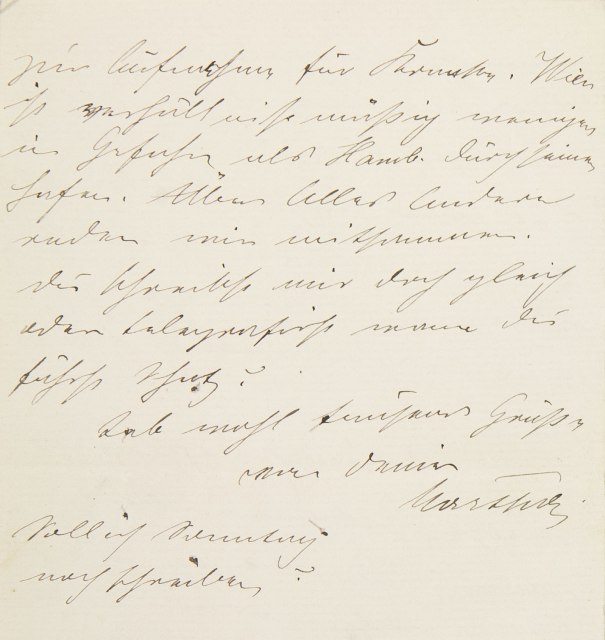 zur Aufnahme für Kranke. Wien
ist verhältnismäßig weniger
in Gefahr als Hamb. durch seinen
Hafen. Über Alles Andere
reden wir mitsammen.
Du schreibst mir doch gleich
oder telegrafirst wann du
fährst Schatz?
Leb wohl tausend Grüße
von deiner
Martha
Soll ich Sonntag
noch schreiben?